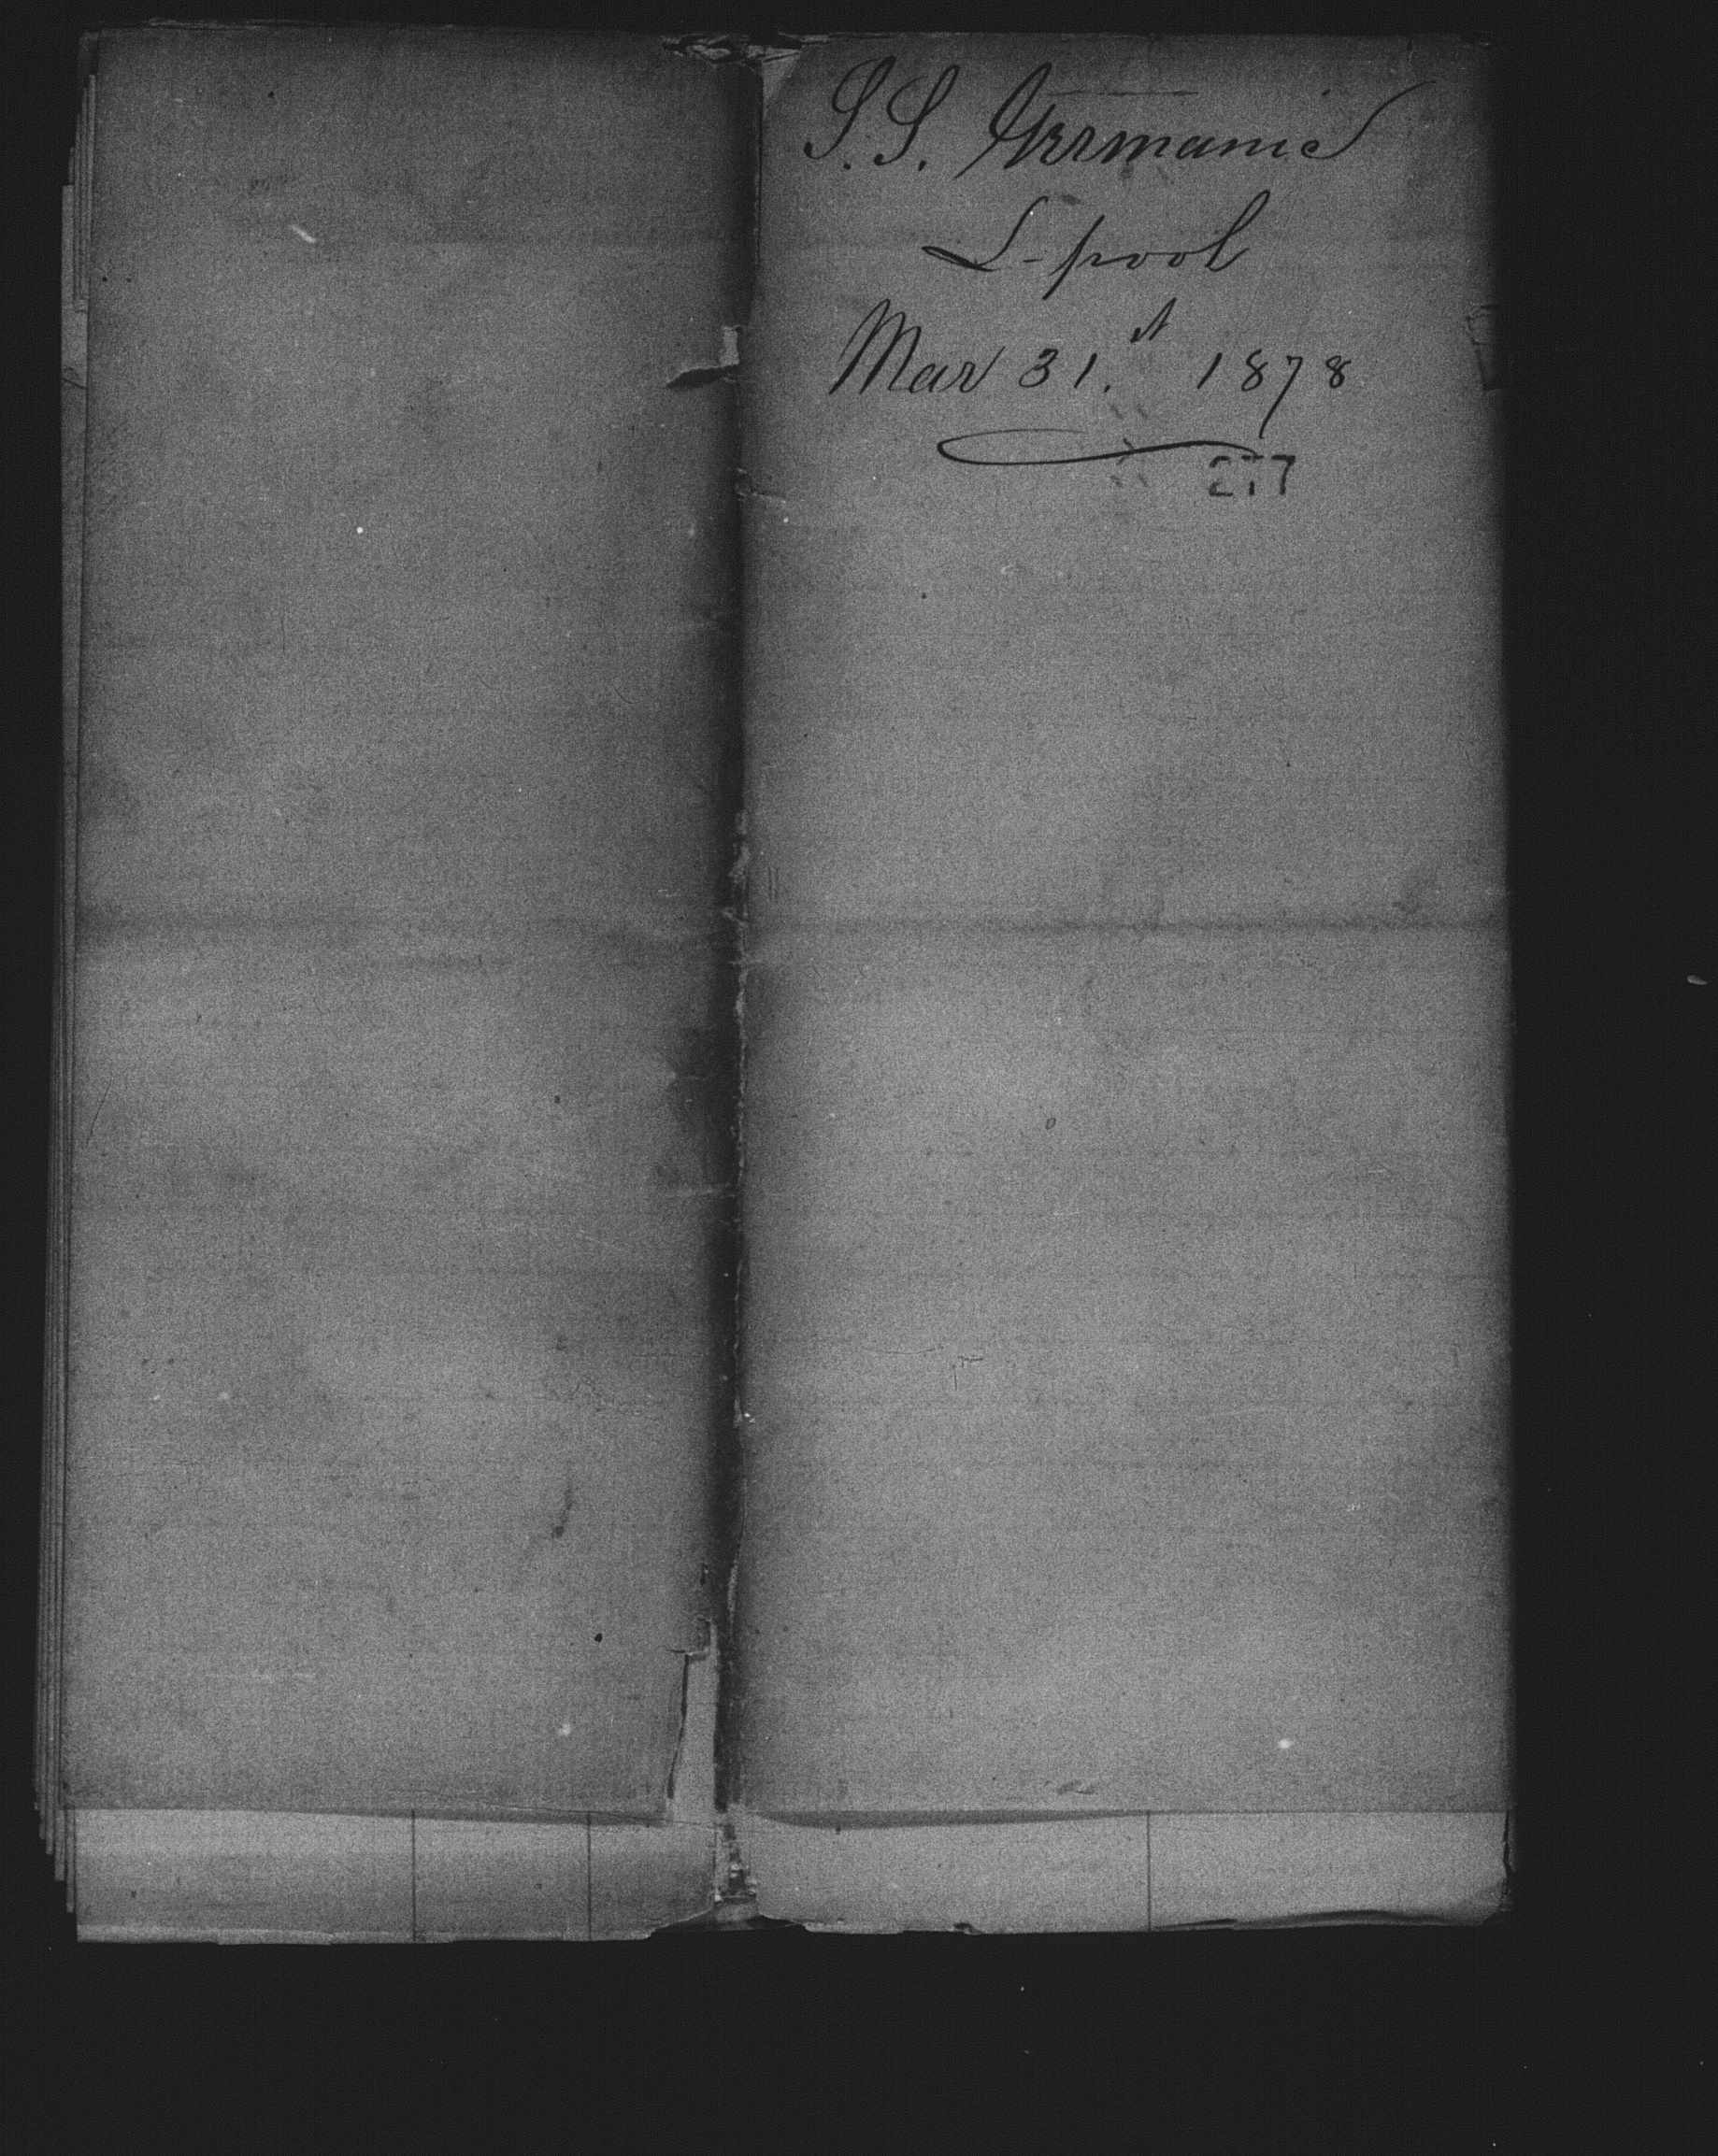 S.S. Germanic
L-pool
Mar 31.st 1878
277